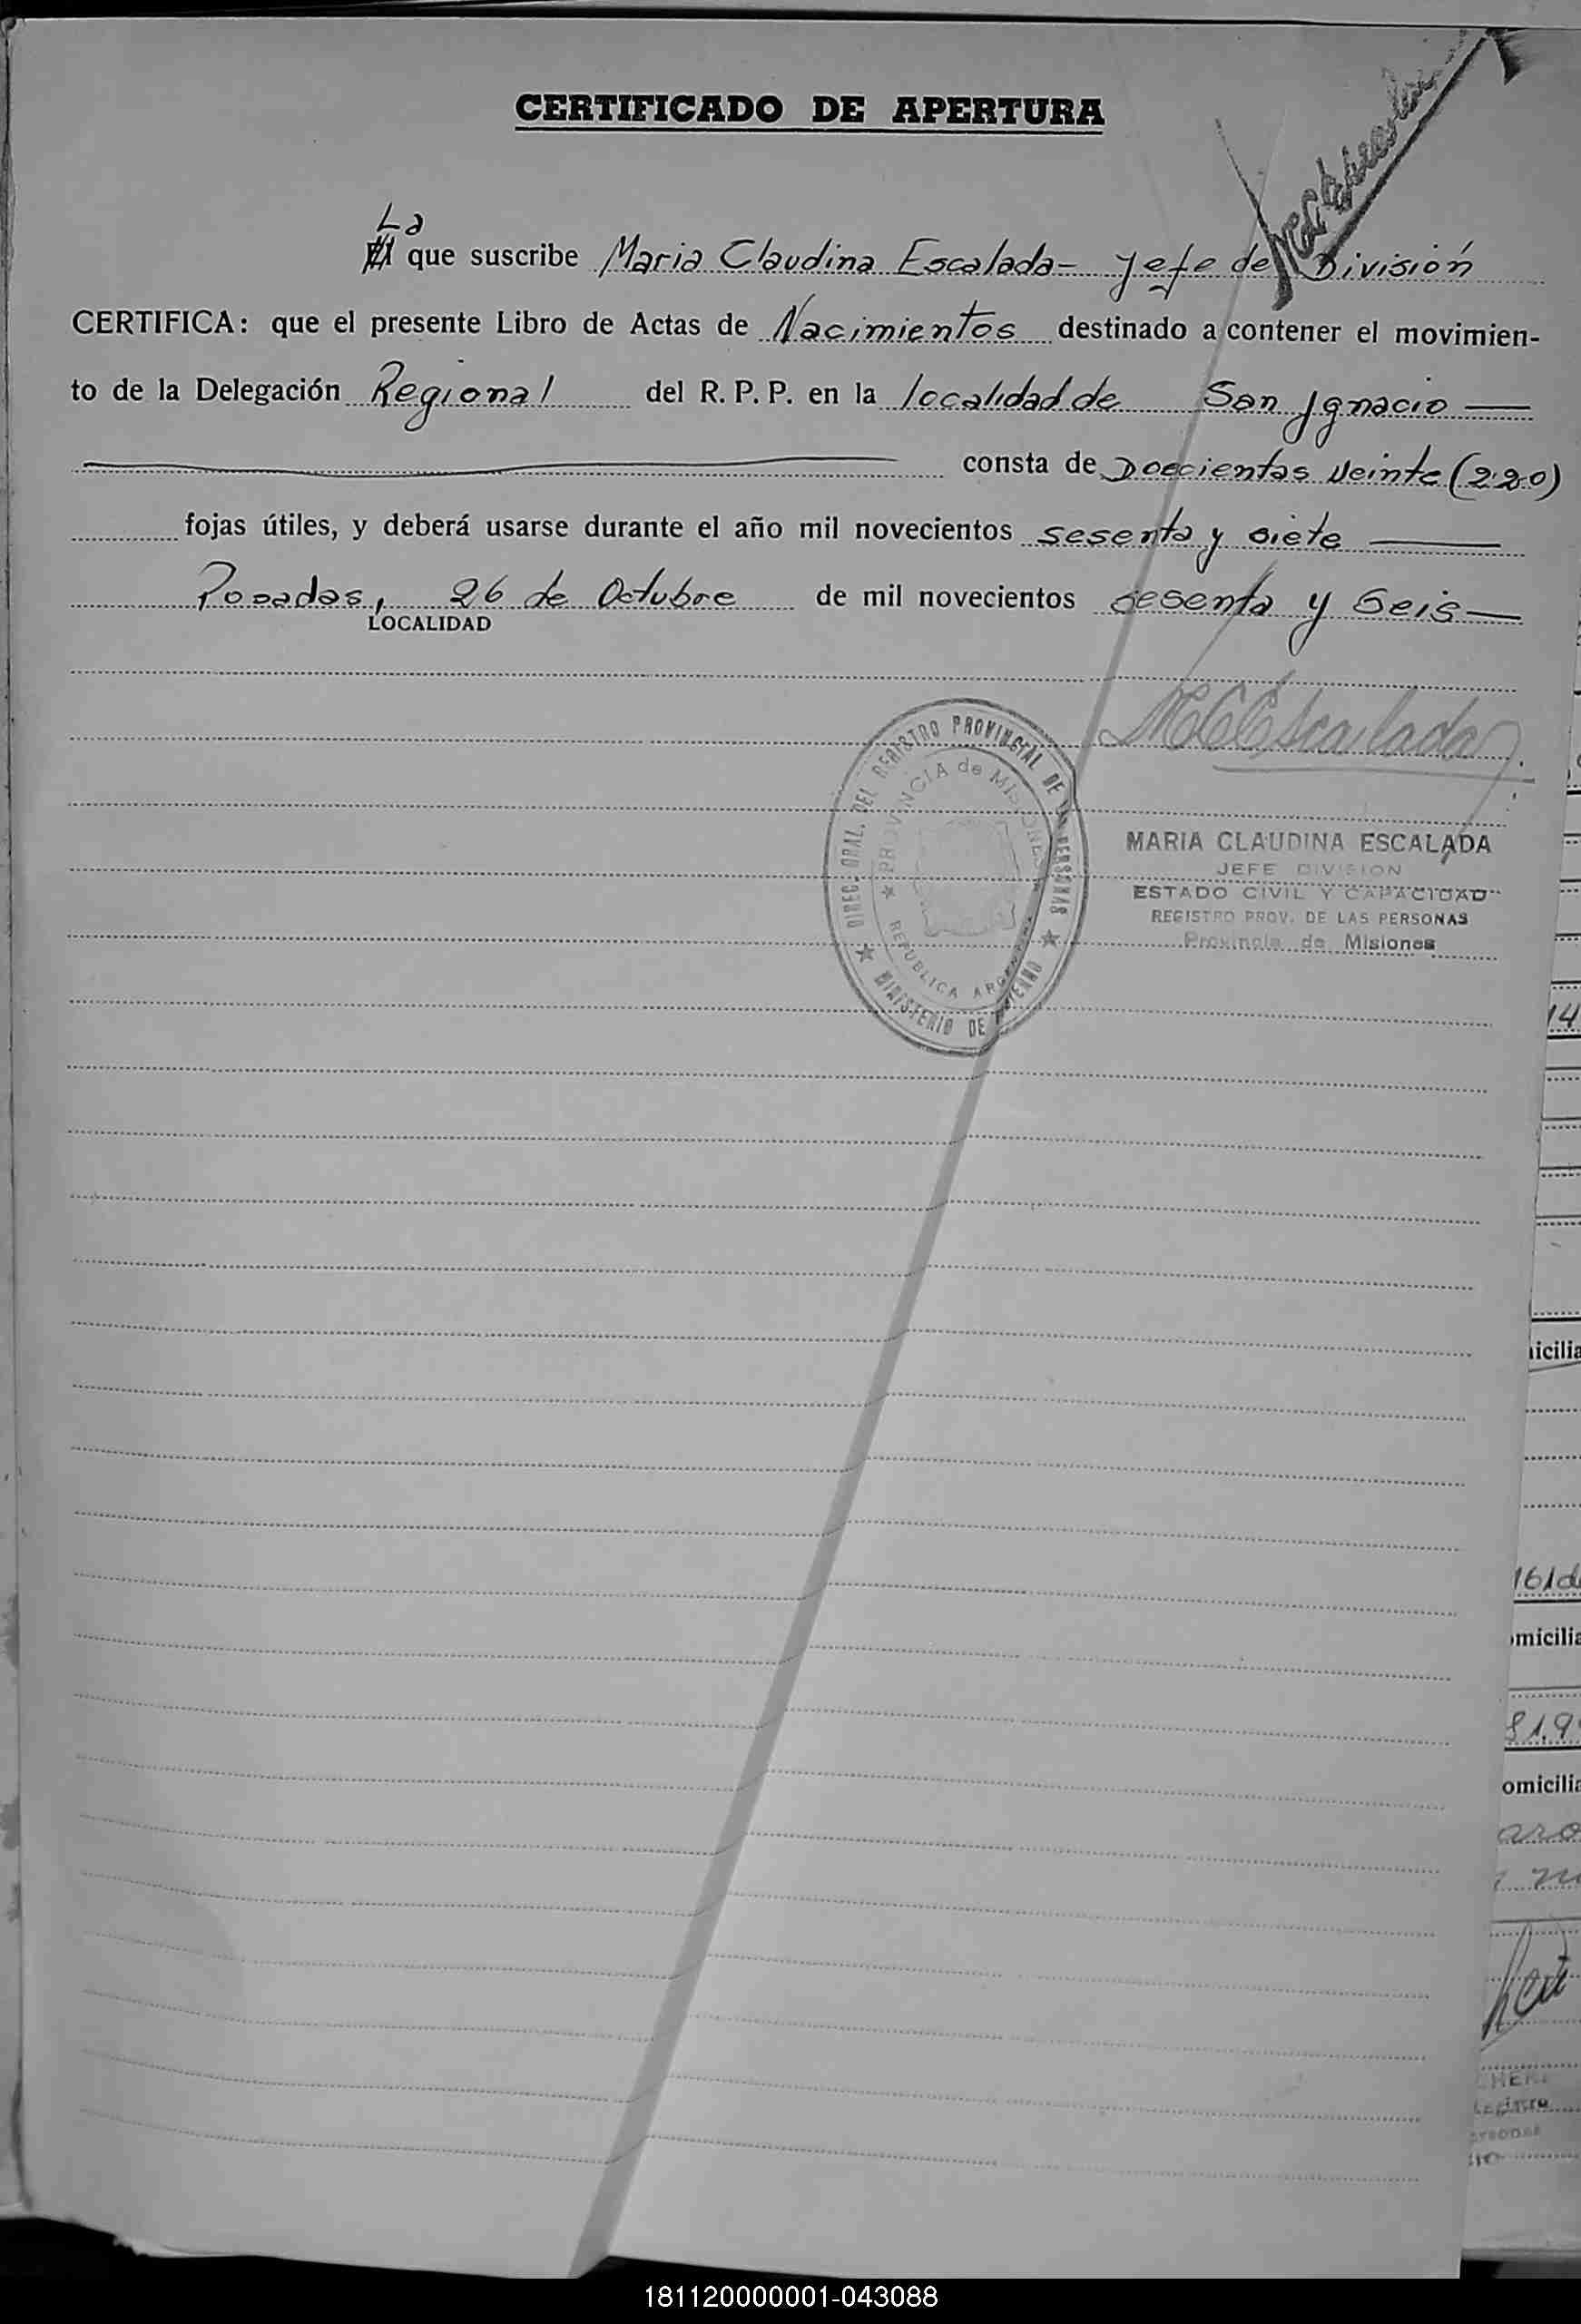 CERTIFICADO DE APERTURA
MCEscalada
La
El que suscribe Maria Claudina Escalada - Jefe de División
CERTIFICA: que el presente Libro de Actas de Nacimientos destinado a contener el movimien-
to de la Delegación Regional del R. P. P. en la localidad de San Ignacio —
consta de Doecientas Veinte (220)
fojas útiles, y deberá usarse durante el año mil novecientos sesenta y siete —
Posadas, 26 de Octubre de mil novecientos sesenta y seis —
LOCALIDAD
MCEscalada
DIREC. GRAL. DEL REGISTRO PROVINCIAL DE LAS PERSONAS
PROVINCIA de MISIONES
REPUBLICA ARGENTINA
MINISTERIO DE GOBIERNO
MARIA CLAUDINA ESCALADA
JEFE DIVISION
ESTADO CIVIL Y CAPACIDAD
REGISTRO PROV. DE LAS PERSONAS
Provincia de Misiones
14
icilia
161d
micilia
81.9
omicilia
aro
181120000001-043088